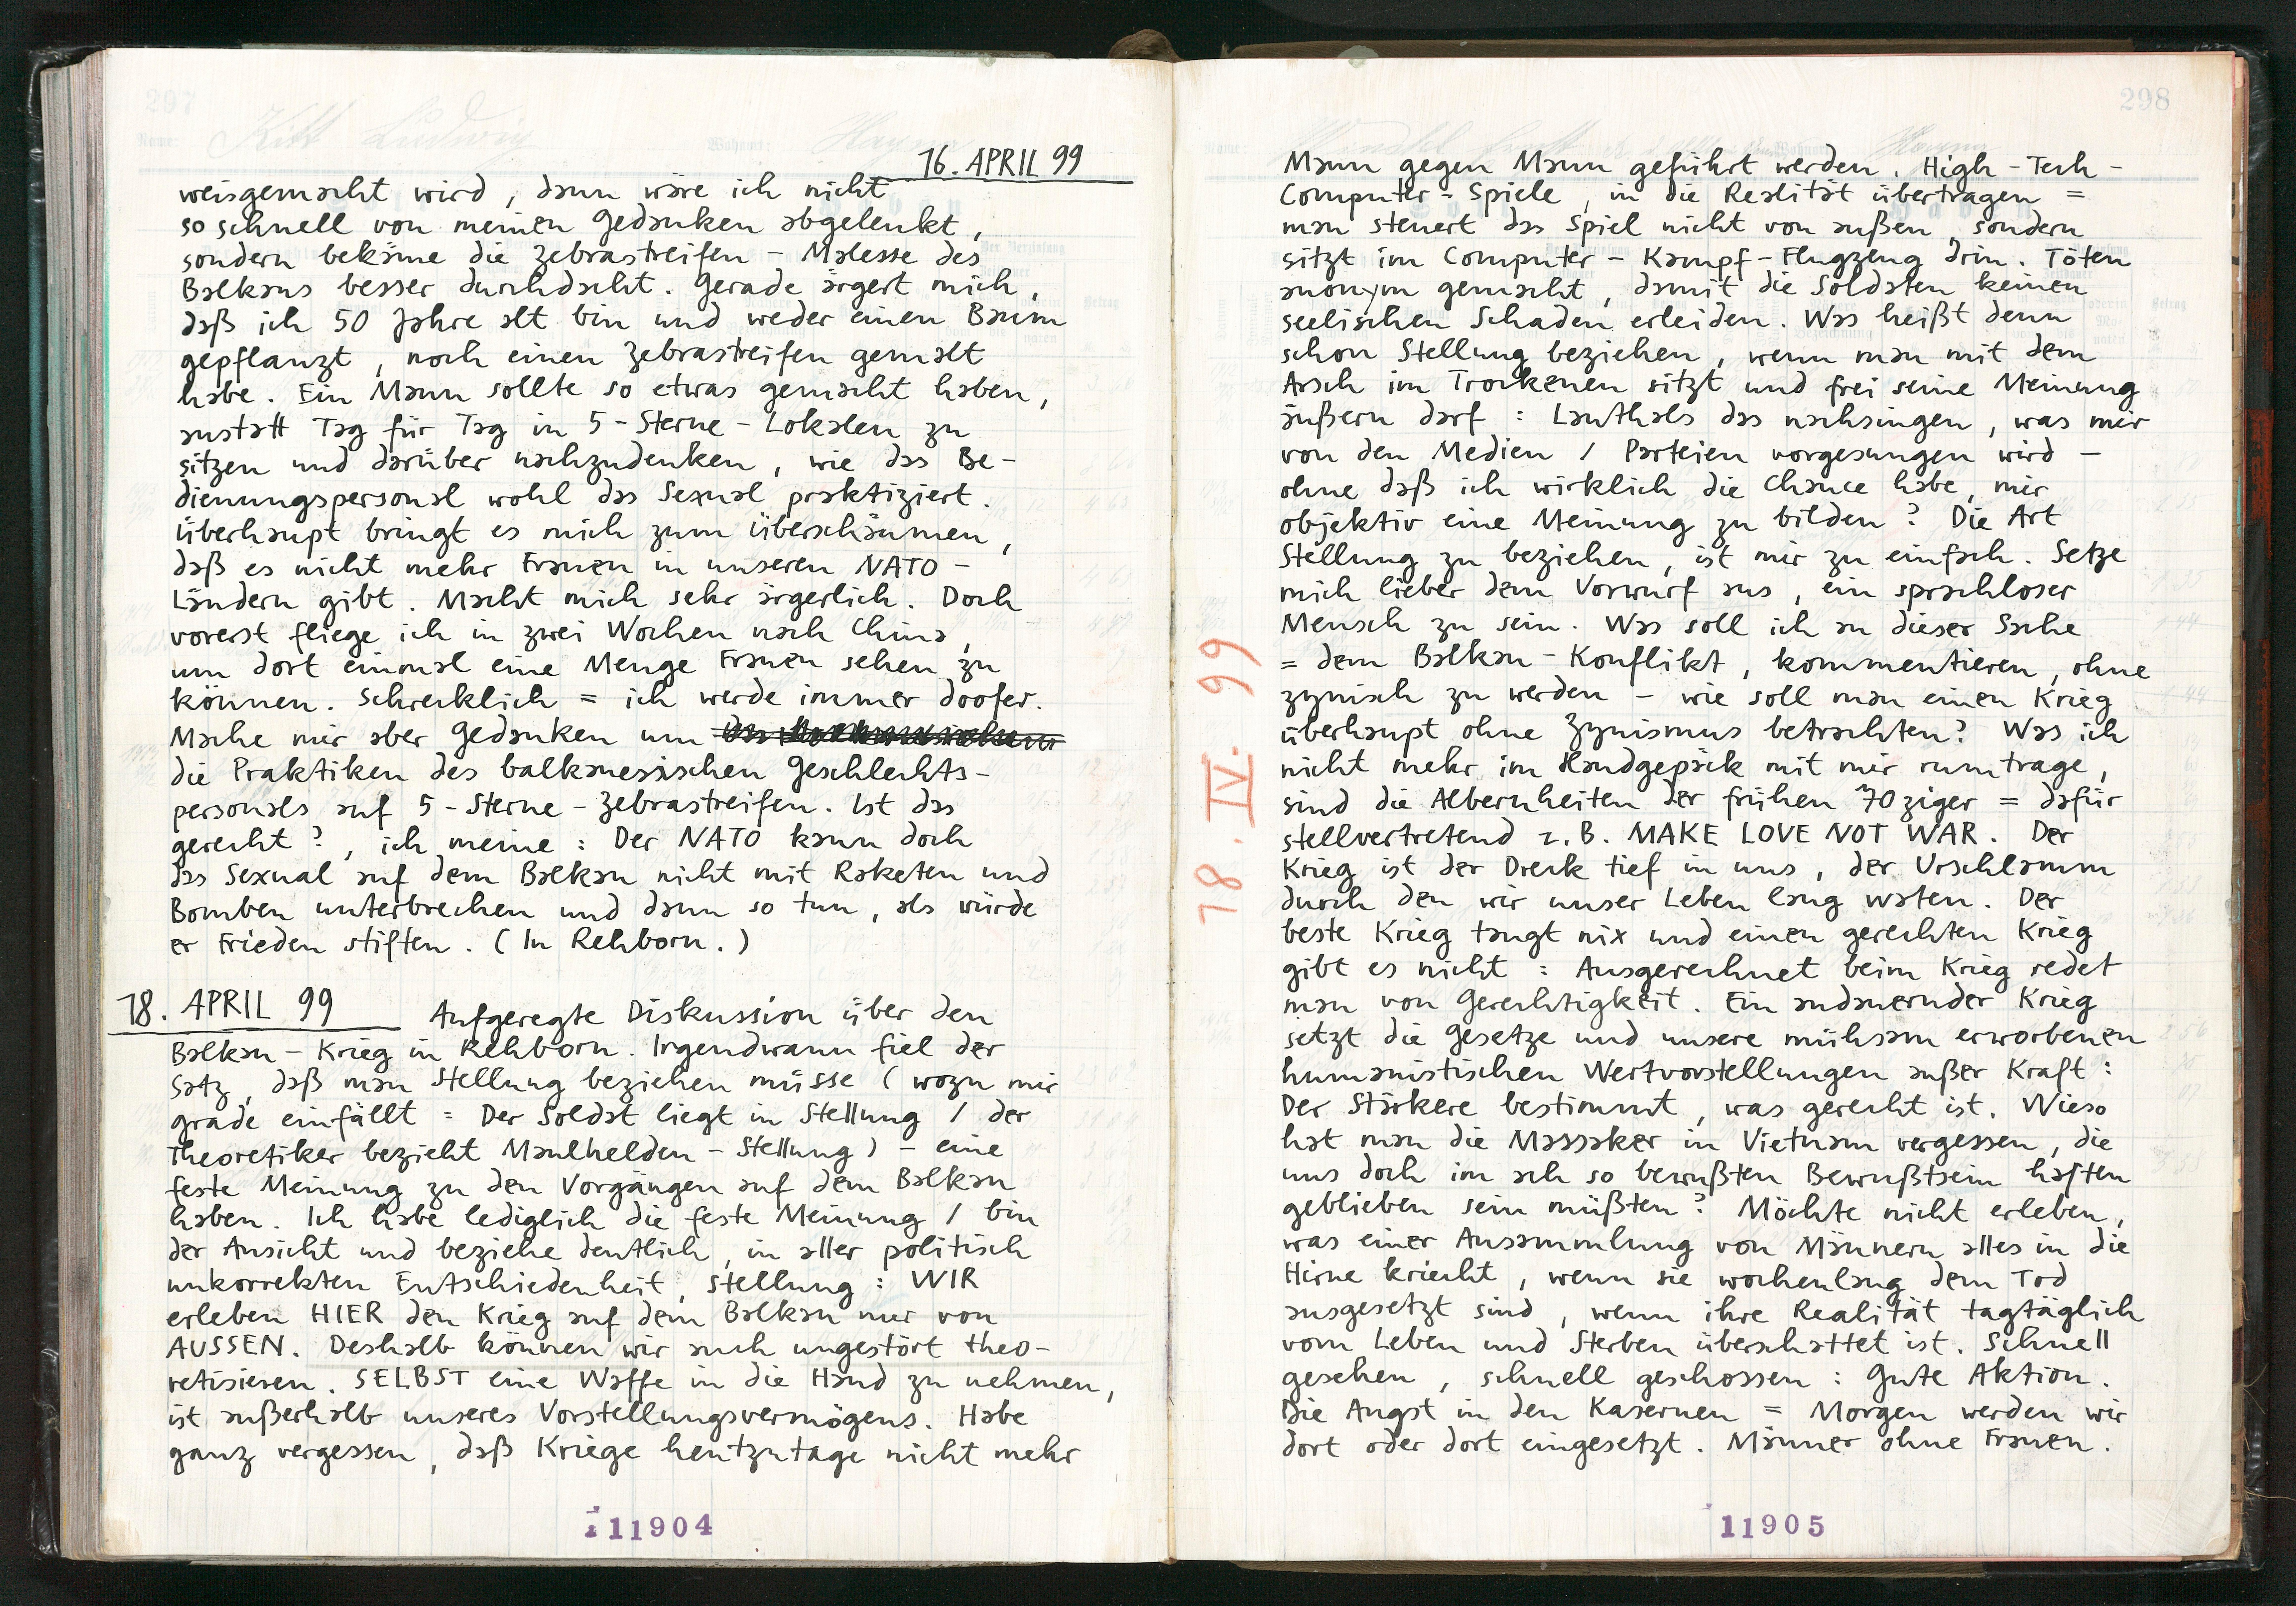 297
16. APRIL 99
weisgemacht wird, dann wäre ich nicht
so schnell von meinen Gedanken abgelenkt,
sondern bekäme die Zebrastreifen - Malesse des
Balkans besser durchdacht. Gerade ärgert mich,
daß ich 50 Jahre alt bin und weder einen Baum
gepflanzt, noch einen Zebrastreifen gemalt
habe. Ein Mann sollte so etwas gemacht haben,
anstatt Tag für Tag in 5-Sterne-Lokalen zu
sitzen und darüber nachzudenken, wie das Be-
dienungspersonal wohl das Sexual praktiziert.
Überhaupt bringt es mich zum Überschäumen,
daß es nicht mehr Frauen in unseren NATO-
Ländern gibt. Macht mich sehr ärgerlich. Doch
vorerst fliege ich in zwei Wochen nach China,
um dort einmal eine Menge Frauen sehen zu
können. Schrecklich = ich werde immer doofer.
Mache mir aber Gedanken um
die Praktiken des balkanesischen Geschlechts-
personals auf 5-Sterne-Zebrastreifen. Ist das
gerecht?, ich meine: Der NATO kann doch
das Sexual auf dem Balkan nicht mit Raketen und
Bomben unterbrechen und dann so tun, als würde
er Frieden stiften. (In Rehborn.)
18. APRIL 99 Aufgeregte Diskussion über den
Balkan-Krieg in Rehborn. Irgendwann fiel der
Satz, daß man Stellung beziehen müsse (wozu mir
grade einfällt = Der Soldat liegt in Stellung / der
Theoretiker bezieht Maulhelden-Stellung) - eine
feste Meinung zu den Vorgängen auf dem Balkan
haben. Ich habe lediglich die feste Meinung / bin
der Ansicht und beziehe deutlich, in aller politisch
unkorrekten Entschiedenheit, Stellung: WIR
erleben HIER den Krieg auf dem Balkan nur von
AUSSEN. Deshalb können wir auch ungestört theo-
retisieren. SELBST eine Waffe in die Hand zu nehmen,
ist außerhalb unseres Vorstellungsvermögens. Habe
ganz vergessen, daß Kriege heutzutage nicht mehr
11904
298
Mann gegen Mann geführt werden. High-Tech-
Computer-Spiele, in die Realität übertragen =
man steuert das Spiel nicht von außen, sondern
sitzt im Computer-Kampf-Flugzeug drin. Töten
anonym gemacht, damit die Soldaten keinen
seelischen Schaden erleiden. Was heißt denn
schon Stellung beziehen, wenn man mit dem
Arsch im Trockenen sitzt und frei seine Meinung
äußern darf: Lauthals das nachsingen, was mir
von den Medien / Parteien vorgesungen wird -
ohne daß ich wirklich die Chance habe, mir
objektiv eine Meinung zu bilden? Die Art
Stellung zu beziehen, ist mir zu einfach. Setze
mich lieber dem Vorwurf aus, ein sprachloser
Mensch zu sein. Was soll ich an dieser Sache
= dem Balkan-Konflikt, kommentieren, ohne
zynisch zu werden - wie soll man einen Krieg
überhaupt ohne Zynismus betrachten? Was ich
nicht mehr im Handgepäck mit mir rumtrage,
sind die Albernheiten der frühen 70ziger = dafür
stellvertretend z.B. MAKE LOVE NOT WAR. Der
Krieg ist der Dreck tief in uns, der Urschlamm
durch den wir unser Leben lang waten. Der
beste Krieg taugt nix und einen gerechten Krieg
gibt es nicht: Ausgerechnet beim Krieg redet
man von Gerechtigkeit. Ein andauernder Krieg
setzt die Gesetze und unsere mühsam erworbenen
humanistischen Wertvorstellungen außer Kraft:
Der Stärkere bestimmt, was gerecht ist. Wieso
hat man die Massaker in Vietnam vergessen, die
uns doch im ach so bewußten Bewußtsein haften
geblieben sein müßten? Möchte nicht erleben,
was einer Ansammlung von Männern alles in die
Hirne kriecht, wenn sie wochenlang dem Tod
ausgesetzt sind, wenn ihre Realität tagtäglich
vom Leben und Sterben überschattet ist. Schnell
gesehen, schnell geschossen: Gute Aktion.
Die Angst in den Kasernen = Morgen werden wir
dort oder dort eingesetzt. Männer ohne Frauen.
18. IV. 99
11905